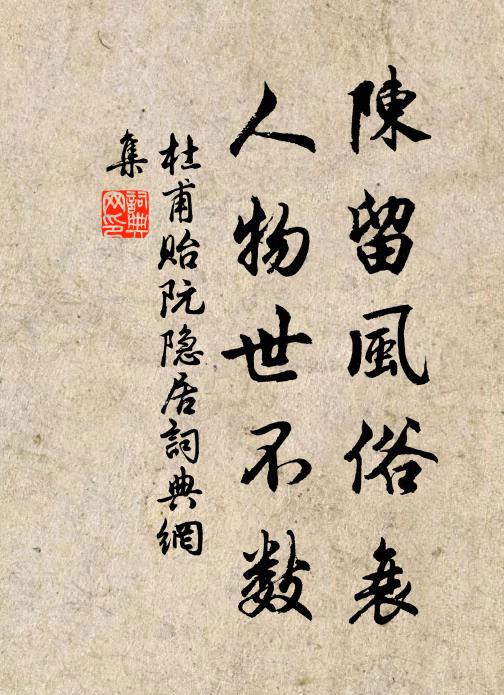 陳留風俗衰
人物世不数
杜甫貽阮隐居詞典網
集
詞典
网印